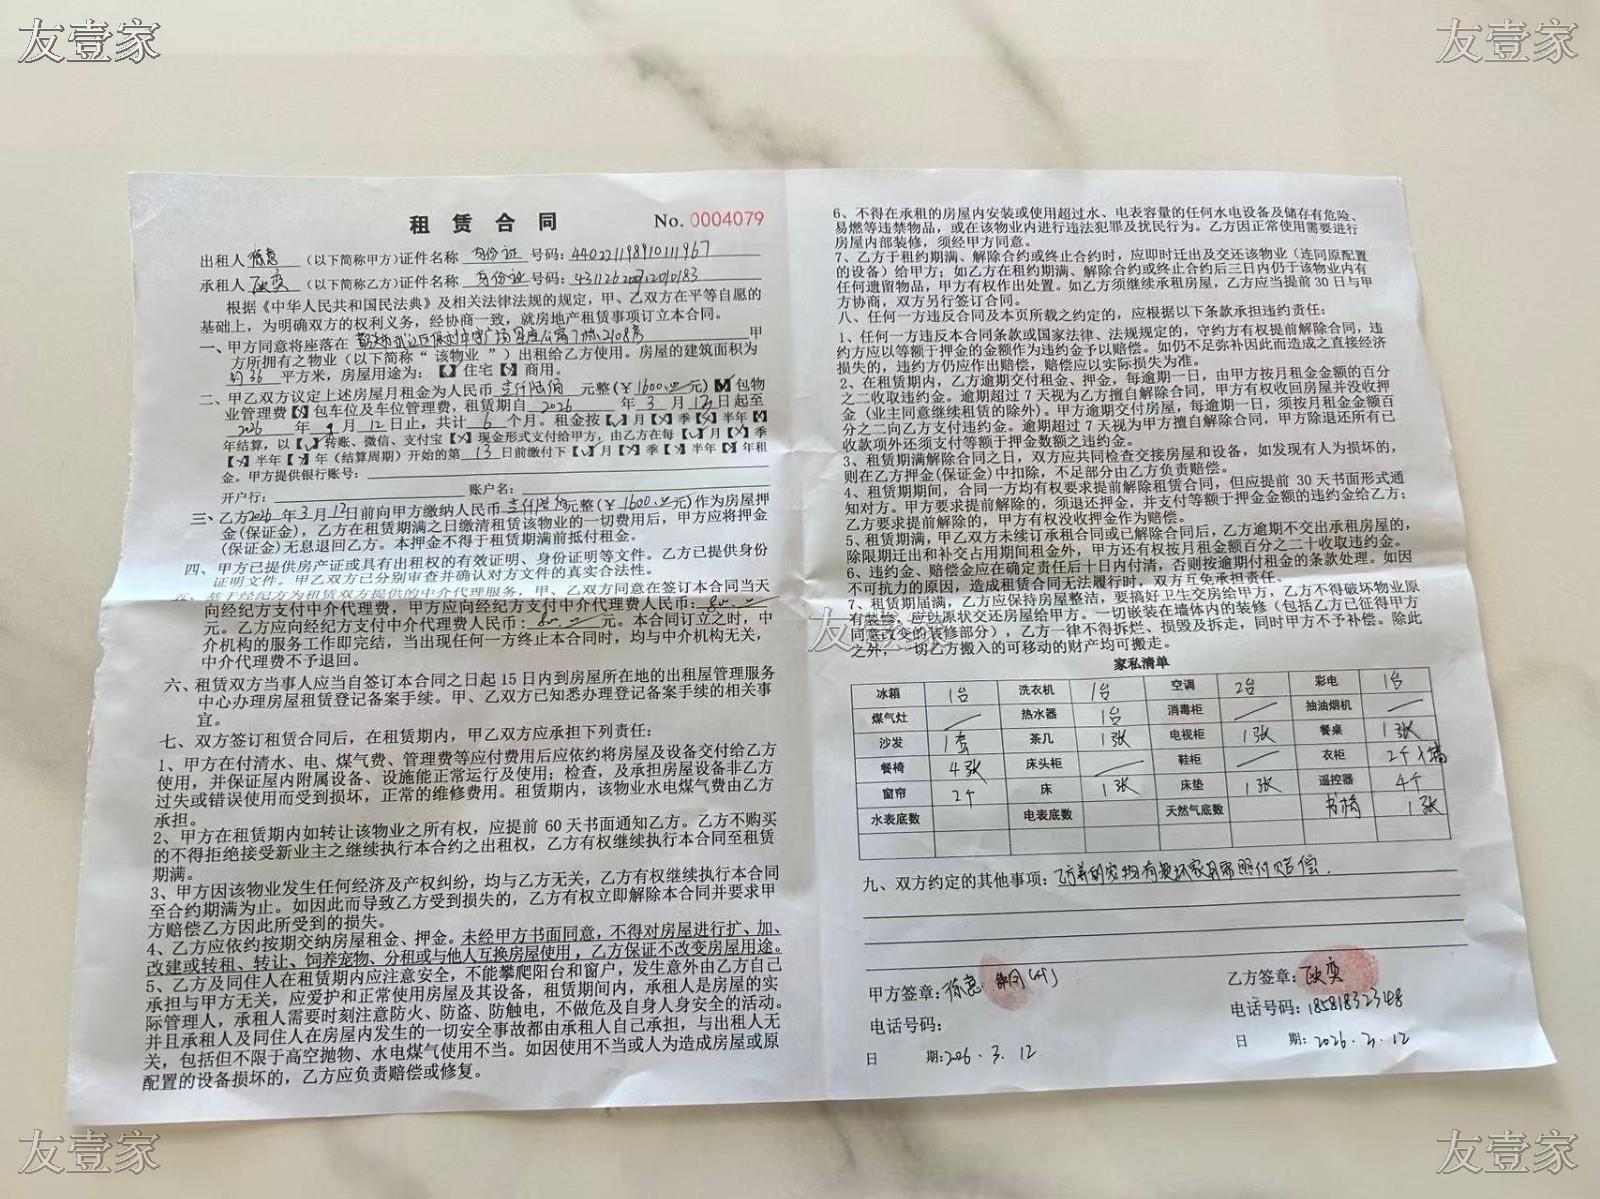 友壹家
友壹家
租 赁 合 同 No. 0004079
出租人 (以下简称甲方)证件名称 身份证 号码:440221198910111967
承租人 (以下简称乙方)证件名称 身份证 号码:
根据《中华人民共和国民法典》及相关法律法规的规定，甲、乙双方在平等自愿的
基础上，为明确双方的权利义务，经协商一致，就房地产租赁事项订立本合同。
一、甲方同意将座落在 7栋2108房 甲
方所拥有之物业（以下简称“ 该物业 ”）出租给乙方使用。房屋的建筑面积为
约36 平方米，房屋用途为：【 】住宅【 】商用。
二、甲乙双方议定上述房屋月租金为人民币 壹仟陆佰 元整(￥1600.00元)【 】包物
业管理费【X】包车位及车位管理费，租赁期自 2026 年 3 月 12 日起至
2026 年 9 月 12 日止，共计 6 个月。租金按【√】月【X】季【X】半年【X】
年结算，以【√】转账、微信、支付宝【X】现金形式支付给甲方，由乙方在每【√】月【X】季
【X】半年【X】年（结算周期）开始的第 13 日前缴付下【√】月【X】季【X】半年【X】年租
金。甲方提供银行账号：
开户行： 账户名：
三、乙方2026 年 3 月 12 日前向甲方缴纳人民币 壹仟陆佰 元整(￥1600.00元)作为房屋押
金(保证金)，乙方在租赁期满之日缴清租赁该物业的一切费用后，甲方应将押金
(保证金)无息退回乙方。本押金不得于租赁期满前抵付租金。
四、甲方已提供房产证或具有出租权的有效证明、身份证明等文件。乙方已提供身份
证明文件。甲乙双方已分别审查并确认对方文件的真实合法性。
五、基于经纪方为租赁双方提供的中介代理服务，甲、乙双方同意在签订本合同当天
向经纪方支付中介代理费，甲方应向经纪方支付中介代理费人民币：
元。乙方应向经纪方支付中介代理费人民币： 元。本合同订立之时，中
介机构的服务工作即完结，当出现任何一方终止本合同时，均与中介机构无关，
中介代理费不予退回。
六、租赁双方当事人应当自签订本合同之日起 15 日内到房屋所在地的出租屋管理服务
中心办理房屋租赁登记备案手续。甲、乙双方已知悉办理登记备案手续的相关事
宜。
七、双方签订租赁合同后，在租赁期内，甲乙双方应承担下列责任：
1、甲方在付清水、电、煤气费、管理费等应付费用后应依约将房屋及设备交付给乙方
使用，并保证屋内附属设备、设施能正常运行及使用；检查，及承担房屋设备非乙方
过失或错误使用而受到损坏，正常的维修费用。租赁期内，该物业水电煤气费由乙方
承担。
2、甲方在租赁期内如转让该物业之所有权，应提前 60 天书面通知乙方。乙方不购买
的不得拒绝接受新业主之继续执行本合约之出租权，乙方有权继续执行本合同至租赁
期满。
3、甲方因该物业发生任何经济及产权纠纷，均与乙方无关，乙方有权继续执行本合同
至合约期满为止。如因此而导致乙方受到损失的，乙方有权立即解除本合同并要求甲
方赔偿乙方因此所受到的损失。
4、乙方应依约按期交纳房屋租金、押金。未经甲方书面同意，不得对房屋进行扩、加、
改建或转租、转让、饲养宠物、分租或与他人互换房屋使用，乙方保证不改变房屋用途。
5、乙方及同住人在租赁期内应注意安全，不能攀爬阳台和窗户，发生意外由乙方自己
承担与甲方无关，应爱护和正常使用房屋及其设备，租赁期间内，承租人是房屋的实
际管理人，承租人需要时刻注意防火、防盗、防触电，不做危及自身人身安全的活动。
并且承租人及同住人在房屋内发生的一切安全事故都由承租人自己承担，与出租人无
关，包括但不限于高空抛物、水电煤气使用不当。如因使用不当或人为造成房屋或原
配置的设备损坏的，乙方应负责赔偿或修复。
6、不得在承租的房屋内安装或使用超过水、电表容量的任何水电设备及储存有危险、
易燃等违禁物品，或在该物业内进行违法犯罪及扰民行为。乙方因正常使用需要进行
房屋内部装修，须经甲方同意。
7、乙方于租约期满、解除合约或终止合约时，应即时迁出及交还该物业（连同原配置
的设备）给甲方；如乙方在租约期满、解除合约或终止合约后三日内仍于该物业内有
任何遗留物品，甲方有权作出处置。如乙方须继续承租房屋，乙方应当提前 30 日与甲
方协商，双方另行签订合同。
八、任何一方违反合同及本页所载之约定的，应根据以下条款承担违约责任：
1、任何一方违反本合同条款或国家法律、法规规定的，守约方有权提前解除合同，违
约方应以等额于押金的金额作为违约金予以赔偿。如仍不足弥补因此而造成之直接经济
损失的，违约方仍应作出赔偿，赔偿应以实际损失为准。
2、在租赁期内，乙方逾期交付租金、押金，每逾期一日，由甲方按月租金金额的百分
之二收取违约金。逾期超过 7 天视为乙方擅自解除合同，甲方有权收回房屋并没收押
金（业主同意继续租赁的除外）。甲方逾期交付房屋，每逾期一日，须按月租金金额百
分之二向乙方支付违约金。逾期超过 7 天视为甲方擅自解除合同，甲方除退还所有已
收款项外还须支付等额于押金数额之违约金。
3、租赁期满解除合同之日，双方应共同检查交接房屋和设备，如发现有人为损坏的，
则在乙方押金(保证金)中扣除，不足部分由乙方负责赔偿。
4、租赁期期间，合同一方均有权要求提前解除租赁合同，但应提前 30 天书面形式通
知对方。甲方要求提前解除的，须退还押金，并支付等额于押金金额的违约金给乙方；
乙方要求提前解除的，甲方有权没收押金作为赔偿。
5、租赁期满，甲乙双方未续订承租合同或已解除合同后，乙方逾期不交出承租房屋的，
除限期迁出和补交占用期间租金外，甲方还有权按月租金额百分之二十收取违约金。
6、违约金、赔偿金应在确定责任后十日内付清，否则按逾期付租金的条款处理。如因
不可抗力的原因，造成租赁合同无法履行时，双方互免承担责任。
7、租赁期届满，乙方应保持房屋整洁，要搞好卫生交房给甲方，乙方不得破坏物业原
有装修，应以原状交还房屋给甲方。一切嵌装在墙体内的装修（包括乙方已征得甲方
同意改变的装修部分），乙方一律不得拆烂、损毁及拆走，同时甲方不予补偿。除此
之外，一切乙方搬入的可移动的财产均可搬走。
友壹家
家私清单
冰箱 1台 洗衣机 1台 空调 2台 彩电 1台
煤气灶 热水器 1台 消毒柜 抽油烟机
沙发 1套 茶几 1张 电视柜 1张 餐桌 1张
餐椅 4张 床头柜 鞋柜 衣柜 2个
窗帘 2个 床 1张 床垫 1张 遥控器 4个
水表底数 电表底数 天然气底数 书椅 1张
九、双方约定的其他事项：乙方养的宠物有损坏家具需照价赔偿.
甲方签章：
乙方签章：
电话号码：
电话号码：18581832348
日 期：2026.3.12
日 期：
友壹家
友壹家